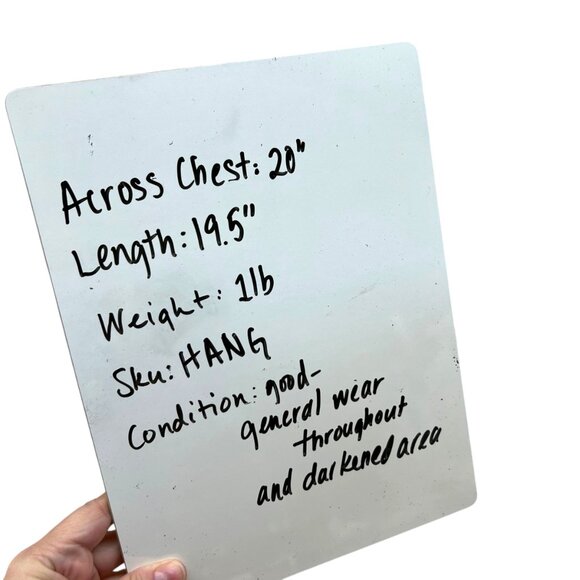 Across Chest: 20"
Length: 19.5"
Weight: 1lb
Sku: HANG
Condition: good-
general wear
throughout
and darkened area